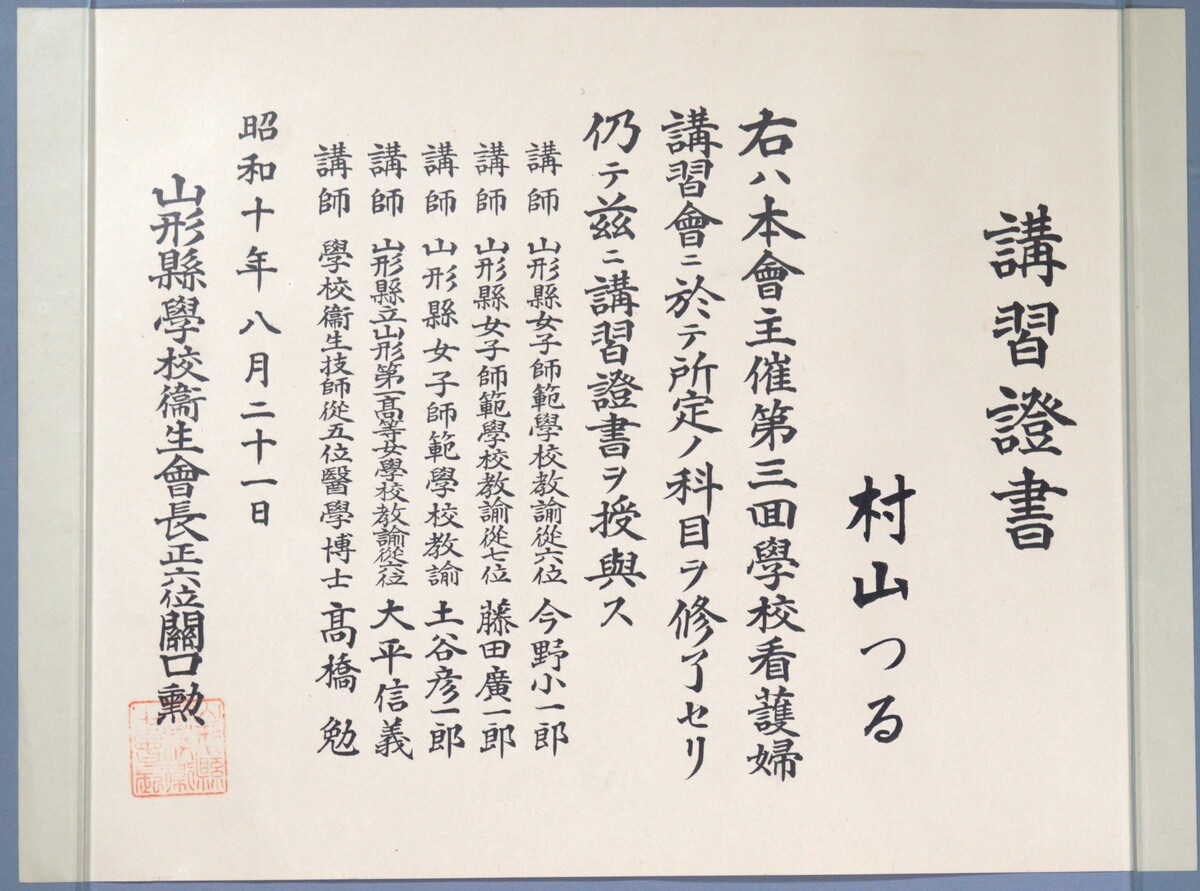 講習證書
村山つる
右ハ本會主催第三回學校看護婦
講習會ニ於テ所定ノ科目ヲ修了セリ
仍テ茲ニ講習證書ヲ授與ス
講師 山形縣女子師範學校教諭從六位 今野小一郎
講師 山形縣女子師範學校教諭從七位 藤田廣一郎
講師 山形縣女子師範學校教諭 土谷彦一郎
講師 山形縣立山形第一高等女學校教諭從六位 大平信義
講師 學校衞生技師從五位醫學博士 髙橋勉
昭和十年八月二十一日
山形縣學校衞生會長正六位關口勲